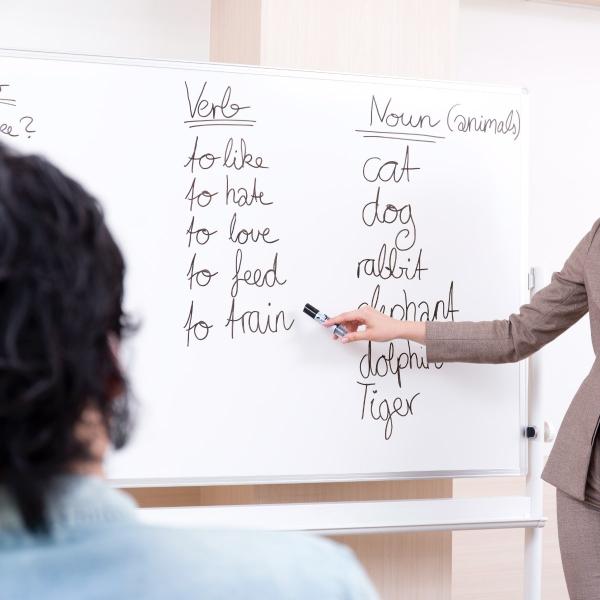 ee?
Verb
to like
to hate
to love
to feed
to train
Noun (animals)
cat
dog
rabbit
elephant
dolphin
Tiger